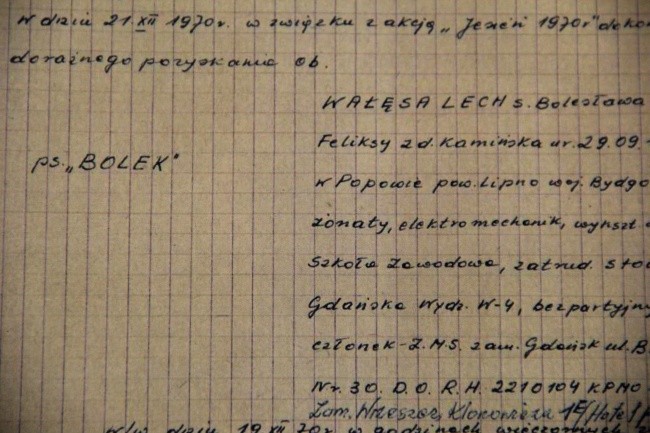 W dniu 21.XII 1970r. w związku z akcją „Jesień 1970r" doko
doraźnego pozyskania ob.
WAŁĘSA LECH s. Bolesława
Feliksy z d. Kamińska ur. 29.09.
ps. „BOLEK"
w Popowie pow. Lipno woj. Bydgo
żonaty, elektromechanik, wykszt.
Szkoła Zawodowa, zatrud. Sto
Gdańska Wydz. W-4, bezpartyjny
członek - Z.M.S. zam. Gdańsk ul. B.
Nr. 30. D.O. R.H. 2210104 KPMO
Zam. Wrzeszcz, Klonowicza 1E/
W/w dniu 19 XII 70r w godzinach wieczornych z